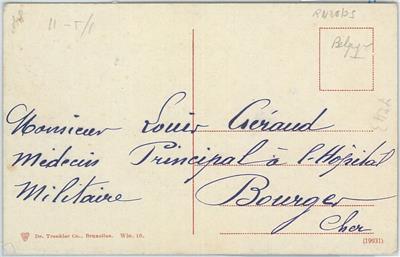 11-5/1
Belgique
Monsieur Louis Géraud
Médecin Principal à l'Hôpital
Militaire Bourges
Cher
Dr. Trenkler Co., Bruxelles. Wln. 16.
(19931)